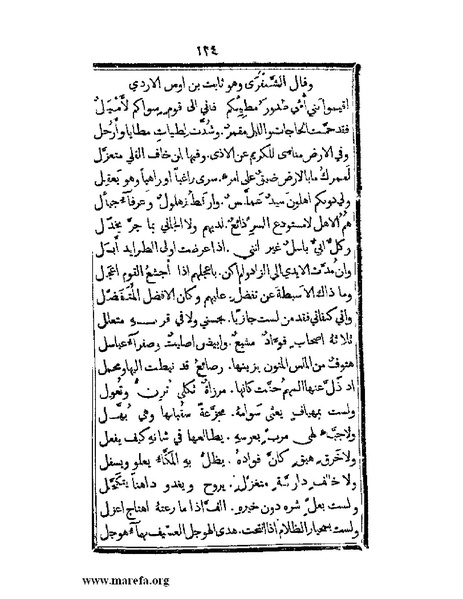 ١٢٤
وقال الشنفرى وهو ثابت بن اوس الازدي
اقيموا بني أمي صدور مطيكم فاني الى قوم سواكم لأميل
فقد حمت الحاجات والليل مقمر وشدت لطيات مطايا وأرحل
وفي الارض مناى للكريم عن الاذى. وفيها لمن خاف القلى متعزل
لعمرك ما بالارض ضيق على امرء. سرى راغبا او راهبا وهو يعقل
ولي دونكم اهلون سيد عملس. وارقط زهلول وعرفاء جيأل
هم الاهل لا مستودع السر ذائع. لديهم ولا الجاني بما جر يخذل
وكل ابي باسل غير انني. اذا عرضت اولى الطرايد أبسل
وان مدت الايدي الى الزاد لم اكن. باعجلهم اذا أجشع القوم اعجل
وما ذاك الا بسطة عن تفضل. عليهم وكان الافضل المتفضل
واني كفاني فقد من لست جازيا. بحسنى ولا في قربه متعلل
ثلاثة اصحاب فواد مشيع. وابيض اصليت وصفراء عيطل
هتوف من الملس المتون يزينها. رصائع قد نيطت اليها ومحمل
اذ ذل عنها السهم حنت كانها. مرزاة ثكلى ترن وتعول
ولست بمهياف يعشي سوامه. مجدعة سقبانها وهي بهل
ولا جباء اكهى مرب بعرسه. يطالعها في شانه كيف يفعل
ولا خرق هيق كان فواده. يظل به المكاء يعلو ويسفل
ولا خالف دارية متغزل. يروح ويغدو داهنا يتكحل
ولست بعل شره دون خيره. الف اذا ما رعته اهتاج اعزل
ولست بمحيار الظلام اذا انتحت. هدى الهوجل العسيف يهماء هوجل
www.marefa.org